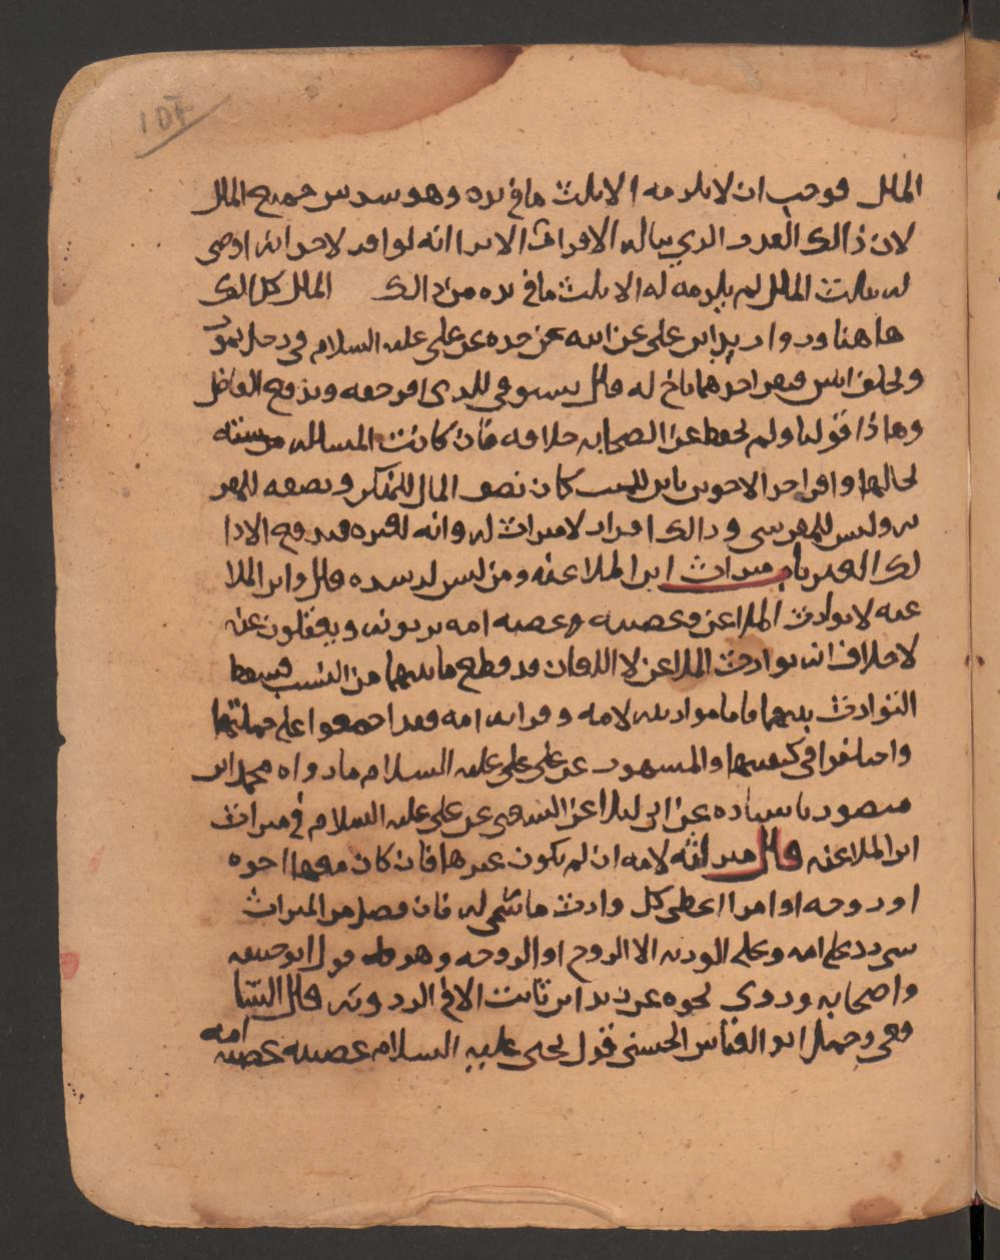 107
المال فوجب ان لا يلزمه الا ثلث ما في يده وهو سدس جميع المال
لان ذالك القدر الذي يناله الاقرار الا ترا انه لو اقر لاحد انه اوصى
له بثلث المال لم يلزمه له الا ثلث ما في يده من ذالك المال كذالك
هاهنا وروا زيد ابن علي عن ابيه عن جده عن علي عليه السلام في رجل يموت
ويخلف ابنين فيقر احدهما باخ له قال يستوفي الذي اقر حقه ويدفع الفاضل
وهاذا قولنا ولم يحفظ عن الصحابه خلافه فان كانت المساله
بحالها واقر احد الاخوين بابن للميت كان نصف المال للمنكر ونصفه للمقر
به وليس للمقر شي وذالك اقراره لا ميراث له وانه لغيره فيدفع الا ذا
لك الغير باب ميراث ابن الملاعنه ومن ليس لرشده قال وابن الملا
عنه لا يوارث الملاعن وعصبته وعصبه امه يرثونه ويعقلون عنه
لا خلاف انه يوارث الملاعن لا اللعان قد قطع ما بينهما من النسب فسقط
التوارث بينهما فاما موارثته لامه وقرابه امه فقد اجمعوا على جملتها
واختلفوا في كيفيتها والمشهور عن علي عليه السلام ما رواه محمد ابن
منصور باسناده عن ابن ليلا عن الشعبي عن علي عليه السلام في ميراث
ابن الملاعنه قال ميراثه لامه ان لم يكون غيرها فان كان معها اخوه
او زوجه او امرا اعطى كل وارث ما سمي له فان فضل من المراث
شي رد على امه وعلى الورثه الا الزوج او الزوجه وهو قول ابو حنيفه
واصحابه وروي نحوه عن زيد ابن ثابت الا في الرد وبه قال الشا
فعي وحمل ابو العباس الحسني قول يحيى عليه السلام عصبته عصبه امه